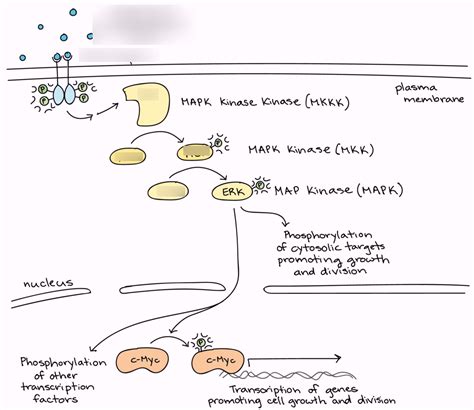 plasma
membrane
P
P
P
P
P
P
MAPK Kinase Kinase (MKKK)
P
MAPK Kinase (MKK)
ERK
P
MAP Kinase (MAPK)
Phosphorylation
of cytosolic targets
promoting growth
and division
nucleus
P
c-Myc
c-Myc
Phosphorylation
of other
transcription
factors
Transcription of genes
promoting cell growth and division